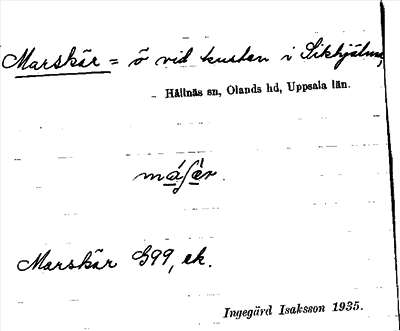 Marskär = ö vid kusten i Sikhjälma,
Hållnäs sn, Olands hd, Uppsala län.
Marskär G99, ek.
Ingegärd Isaksson 1935.